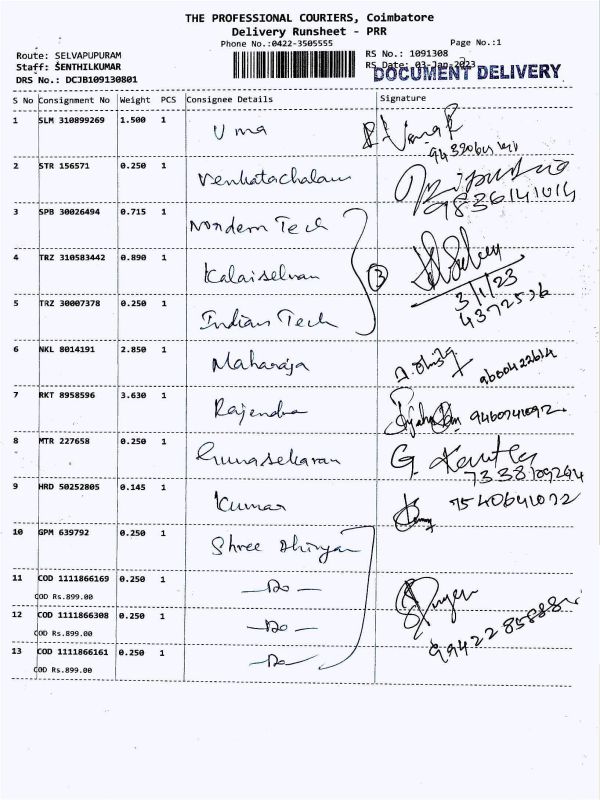 THE PROFESSIONAL COURIERS, Coimbatore
Delivery Runsheet - PRR
Phone No.:0422-3505555
Page No.:1
Route: SELVAPUPURAM
RS No.: 1091308
Staff: SENTHILKUMAR
RS Date: 03-Jan-2023
DOCUMENT DELIVERY
DRS No.: DCJB109130801
S No Consignment No Weight PCS Consignee Details Signature
1 SLM 310899269 1.500 1 Uma
2 STR 156571 0.250 1 Venkatachalam
9836141014
3 SPB 30026494 0.715 1 Nordern Tech
4 TRZ 310583442 0.890 1 Kalaiselvan 3
3/1/23
5 TRZ 30007378 0.250 1 Indian Tech
4372526
6 NKL 8014191 2.850 1 Maharaja
9600422614
7 RKT 8958596 3.630 1 Rajendra
9460741092
8 MTR 227658 0.250 1 Gunasekaran
7338109294
9 HRD 50252805 0.145 1 Kumar
7540641072
10 GPM 639792 0.250 1 Shree
11 COD 1111866169 0.250 1 -Do-
COD Rs.899.00
12 COD 1111866308 0.250 1 -Do-
COD Rs.899.00
13 COD 1111866161 0.250 1 -Do-
COD Rs.899.00